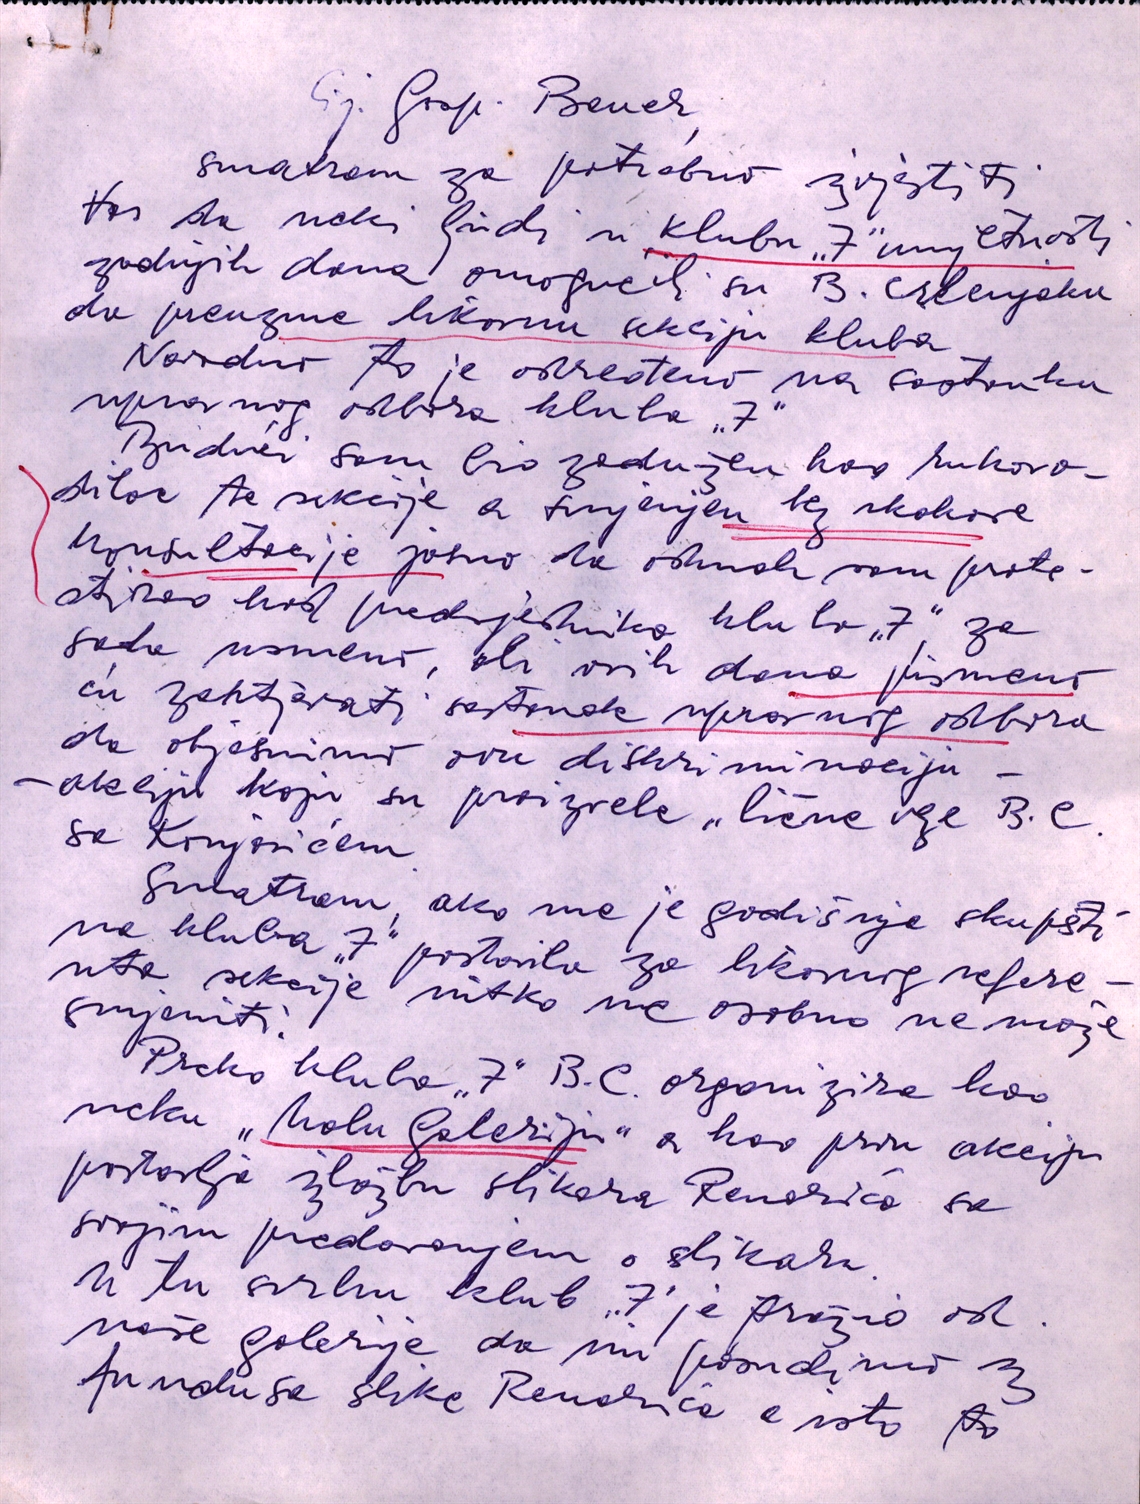 Cij. Gosp. Bauer,
smatram za potrebno izvjestiti
Vas da neki ljudi u klubu „7" umjetnosti
zadnjih dana omogućili su B. Crlenjaku
da preuzme likovnu sekciju kluba
Navodno to je određeno na sastanku
upravnog odbora kluba „7"
Budući sam bio zadužen kao rukovo-
dilac te sekcije a smjenjen bez ikakove
konsultacije jasno da odmah sam prote-
stirao kod predsjednika kluba „7", za
sada usmeno, ali ovih dana pismeno
ću zahtjevati sastanak upravnog odbora
da objasnimo ovu diskriminaciju –
– akciju koju su proizvele „lične veze B. C.
sa Konjovićem
Smatram, ako me je godišnje skupšti
na kluba „7" postavila za likovnog refere –
nta sekcije nitko me osobno ne može
smjeniti.
Preko kluba „7" B.C. organizira kao
neku „Malu Galeriju" a kao prvu akciju
postavlja izložbu slikara Renarića sa
svojim predavanjem o slikaru.
U tu svrhu klub „7" je tražio od
naše galerije da mi posudimo iz
fundusa slike Renarića a isto to